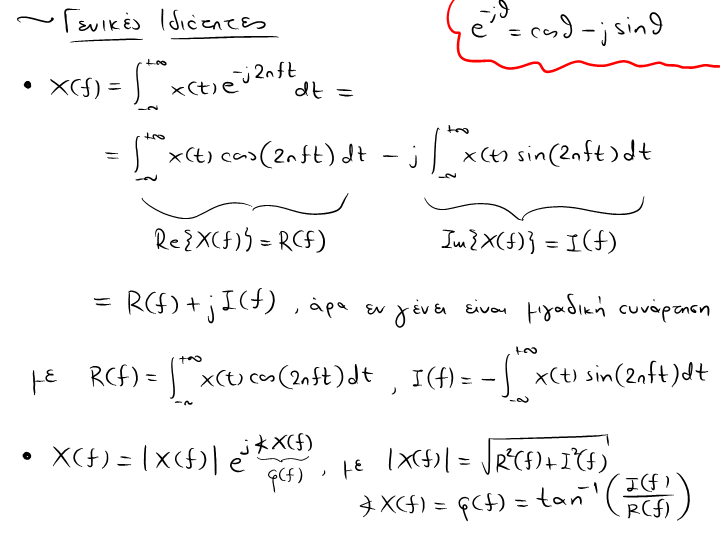 ~ Γενικές Ιδιότητες
e^{-jθ} = cosθ - j sinθ
• X(f) = ∫_{-∞}^{+∞} x(t) e^{-j2πft} dt =
= ∫_{-∞}^{+∞} x(t) cos(2πft) dt - j ∫_{-∞}^{+∞} x(t) sin(2πft) dt
Re{X(f)} = R(f) Im{X(f)} = I(f)
= R(f) + j I(f) , άρα εν γένει είναι μιγαδική συνάρτηση
με R(f) = ∫_{-∞}^{+∞} x(t) cos(2πft) dt , I(f) = - ∫_{-∞}^{+∞} x(t) sin(2πft) dt
• X(f) = |X(f)| e^{j∢X(f)} , με |X(f)| = √(R²(f) + I²(f))
φ(f)
∢X(f) = φ(f) = tan^{-1}(I(f)/R(f))